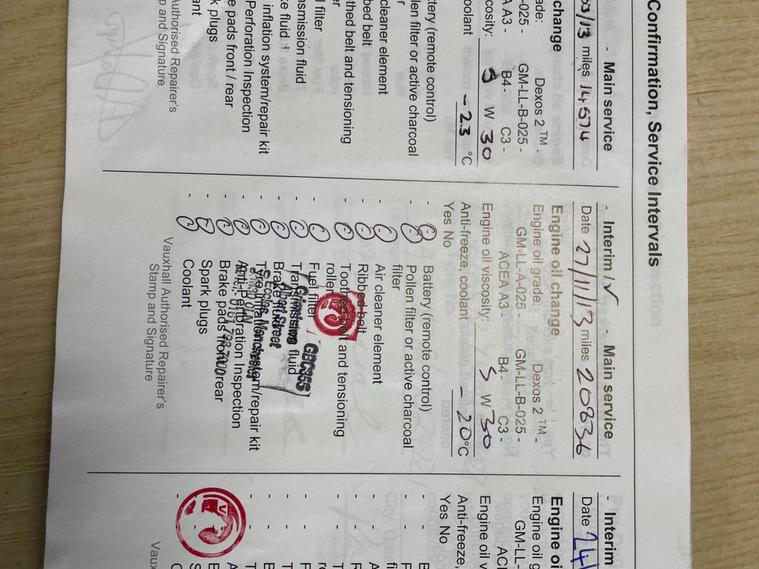 Confirmation, Service Intervals
03/13 miles 14574
- Main service
change
ade: Dexos 2 ™ -
-025 - GM-LL-B-025 -
A A3 - B4- C3 -
scosity: 5 W 30
oolant -23 °C
ttery (remote control)
llen filter or active charcoal
er
cleaner element
bed belt
thed belt and tensioning
er
l filter
nsmission fluid
e fluid
inflation system/repair kit
Perforation Inspection
e pads front / rear
k plugs
ant
uthorised Repairer's
p and Signature
- Interim - Main service
Date 27/11/13 miles 20836
Engine oil change
Engine oil grade: Dexos 2 ™ -
GM-LL-A-025 GM-LL-B-025 -
ACEA A3 - B4- C3 -
Engine oil viscosity: 5 W 30
Anti-freeze, coolant -20 °C
Yes No
- Battery (remote control)
- Pollen filter or active charcoal
filter
- Air cleaner element
- Ribbed belt
- Toothed belt and tensioning
roller
- Fuel filter
- Transmission fluid
- Brake fluid
- Tyre inflation system/repair kit
- Anti-Perforation Inspection
- Brake pads front / rear
- Spark plugs
- Coolant
Vauxhall Authorised Repairer's
Stamp and Signature
- Interim
Date 24/
Engine oi
Engine oil g
GM-LL-
ACE
Engine oil v
Anti-freeze,
Yes No